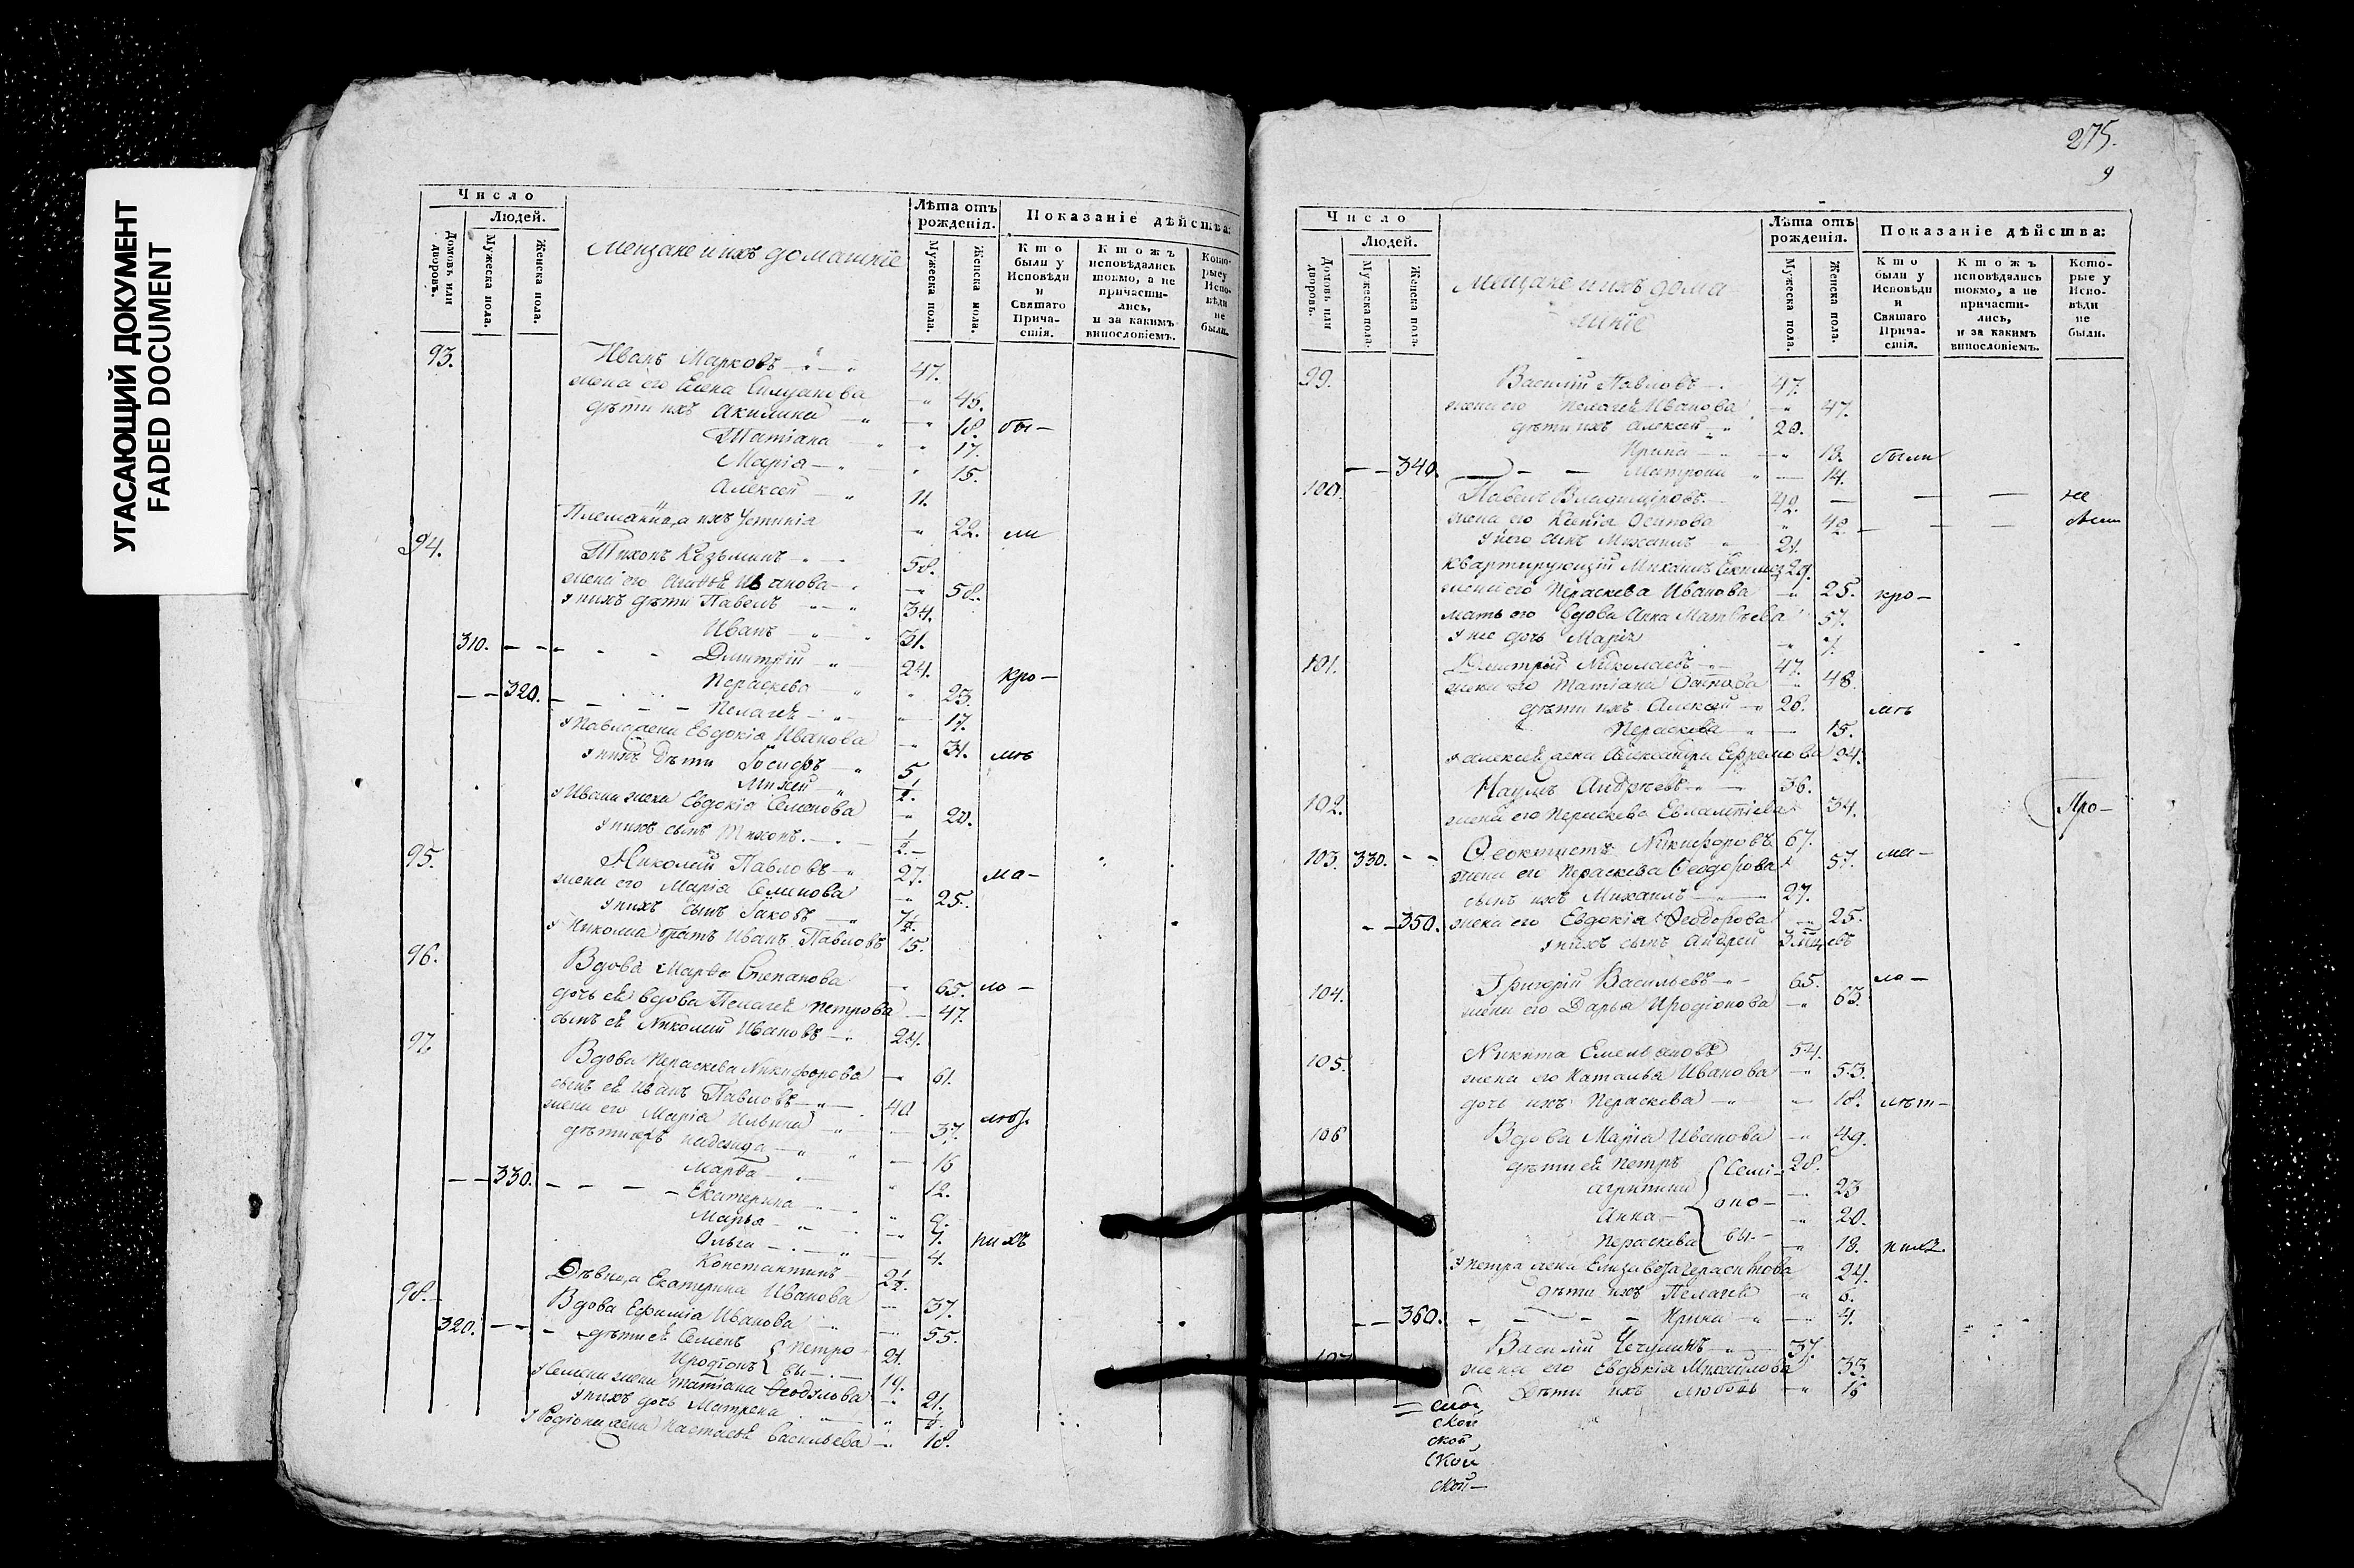 УГАСАЮЩИЙ ДОКУМЕНТ
FADED DOCUMENT
Число
Людей.
Домовъ или дворовъ.
Мужеска пола.
Женска пола.
Мещане и ихъ домашніе
Лѣта отъ рожденія.
Мужеска пола.
Женска пола.
Показаніе дѣйства:
Кто были у Исповѣди и Святаго Причастія.
Ктожъ исповѣдались токмо, а не причастились, и за какимъ винословіемъ.
Которые у Исповѣди не были.
93. Иванъ Марковъ 47.
жена его Елена Силуанова 45.
дѣти ихъ Акилина 18. бы-
Татіана 17.
Марія 15.
Алексей 11.
Племянница ихъ Устинія 22. ли
94. Тихонъ Козьминъ 58.
жена его Иванова 58.
у нихъ дѣти Павелъ 34.
Иванъ 31.
310. Димитрій 24. кро-
Пераскева 23.
320. Пелагеѣ 17.
у Павла жена Евдокія Иванова 31. мѣ
у нихъ дѣти Іосифъ 5
1/2.
у Ивана жена Евдокія Семенова 20.
у нихъ сынъ Тихонъ 1/2.
95. Николай Павловъ 27. ма-
жена его Марія Семенова 25.
у нихъ сынъ Іаковъ 1/2
у Николая братъ Иванъ Павловъ 15.
96. Вдова Марѳа Степанова 65. ло-
дочь ей вдова Пелагеѣ Петрова 47.
сынъ ей Николай Ивановъ 24.
97. Вдова Пераскева Никифорова 61.
сынъ ей Иванъ Павловъ 40
жена его Марія Ильина 37.
дѣти ихъ Надежда 16
Марѳа 12.
330. Екатерина 9.
Марья 7.
Ольга 4. нихъ
Константинъ 2 1/2.
Дѣвица Екатерина Иванова 37.
98. Вдова Ефимія Иванова 55.
320. дѣти ей Семенъ Петро 21.
Иродіонъ вы 19.
у Семена жена Татіана 21.
у нихъ дочь Матрена
у Родіона жена Настасьѣ Васильева 18.
275.
9
Число
Людей.
Домовъ или дворовъ.
Мужеска пола.
Женска пола.
Мещане и ихъ дома
шніе
Лѣта отъ рожденія.
Мужеска пола.
Женска пола.
Показаніе дѣйства:
Кто были у Исповѣди и Святаго Причастія.
Ктожъ исповѣдались токмо, а не причастились, и за какимъ винословіемъ.
Которые у Исповѣди не были.
99. Василій Павловъ 47.
жена его Пелагеѣ Иванова 47.
дѣти ихъ Алексей 20.
Ирина 18. были
340. Матрона 14.
100. Павелъ Владиміровъ 42. не
жена его Ксенія Осипова 42.
у него сынъ Михаилъ 21.
квартирующій Михаилъ 29.
жена его Пераскева Иванова 25. кро-
мать его вдова Анна Матвѣева 57.
у нее дочь Марія 7.
101. Димитрій Николаевъ 47.
жена его Татіана 48.
дѣти ихъ Алексей 26. мѣ
Пераскева 15.
у Алексея жена Александра Ефремова 24.
102. Наумъ Андреевъ 36.
жена его Пераскева Евлампіева 34. Про-
103. 330. Ѳеоктистъ Никифоровъ 67.
жена его Пераскева Ѳеодорова 57. ма-
сынъ ихъ Михаилъ 27.
350. жена его Евдокія Ѳеодорова 25.
у нихъ сынъ Андрей 3
104. Григорій Васильевъ 65. ло-
жена его Дарья Иродіонова 63.
105. Никита Емельяновъ 54.
жена его Наталья Иванова 53.
дочь ихъ Пераскева 18. лѣт-
106 Вдова Марія Иванова 49.
дѣти ей Петръ Семі- 28.
Агрипина 23
оно-
Анна 20.
Пераскева вы- 18. нихъ.
у Петра жена Елизавета Герасимова 24.
дѣти ихъ Пелагеѣ 6.
360. Ирина 4.
107 Василій Чечулинъ 37.
жена его Евдокія Михайлова 33.
Дѣти ихъ Любовь 16
ской
ской
ской
ской